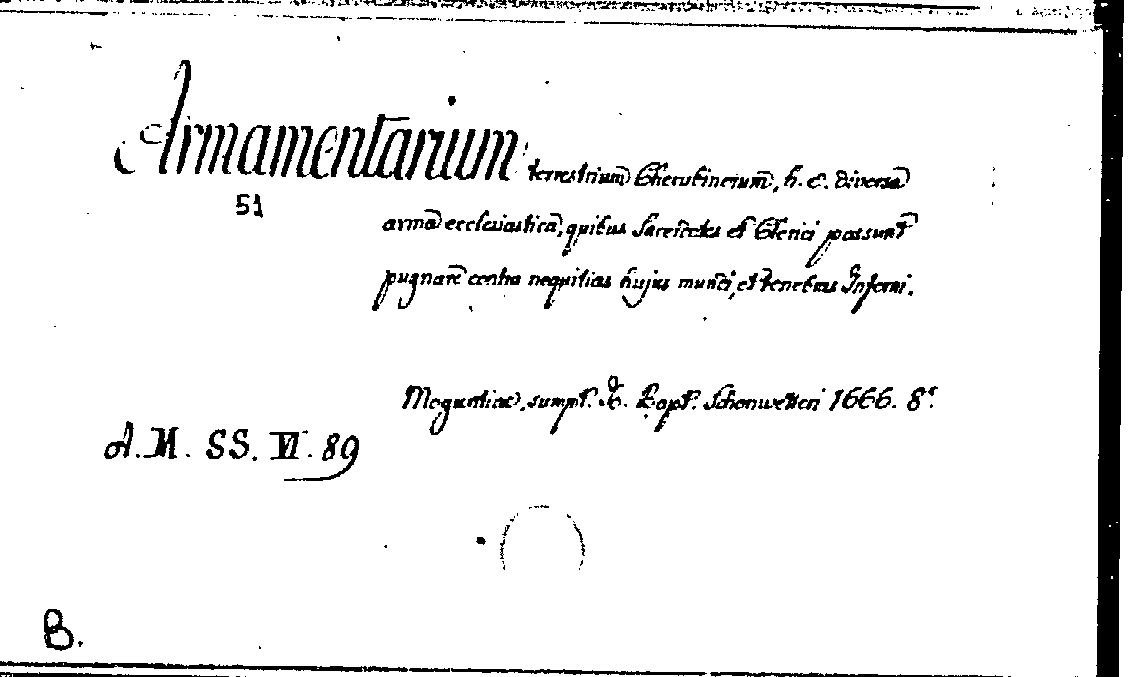 Armamentarium terrestrium Cherubinorum, h. e. diversa
51
arma ecclesiastica, quibus Sacerdotes et Clerici possunt
pugnare contra nequitias hujus mundi, et tenebras Inferni.
Moguntiae, sumpt. J. Bapt. Schönwetteri 1666. 8°.
A.M. SS. VI. 89
B.